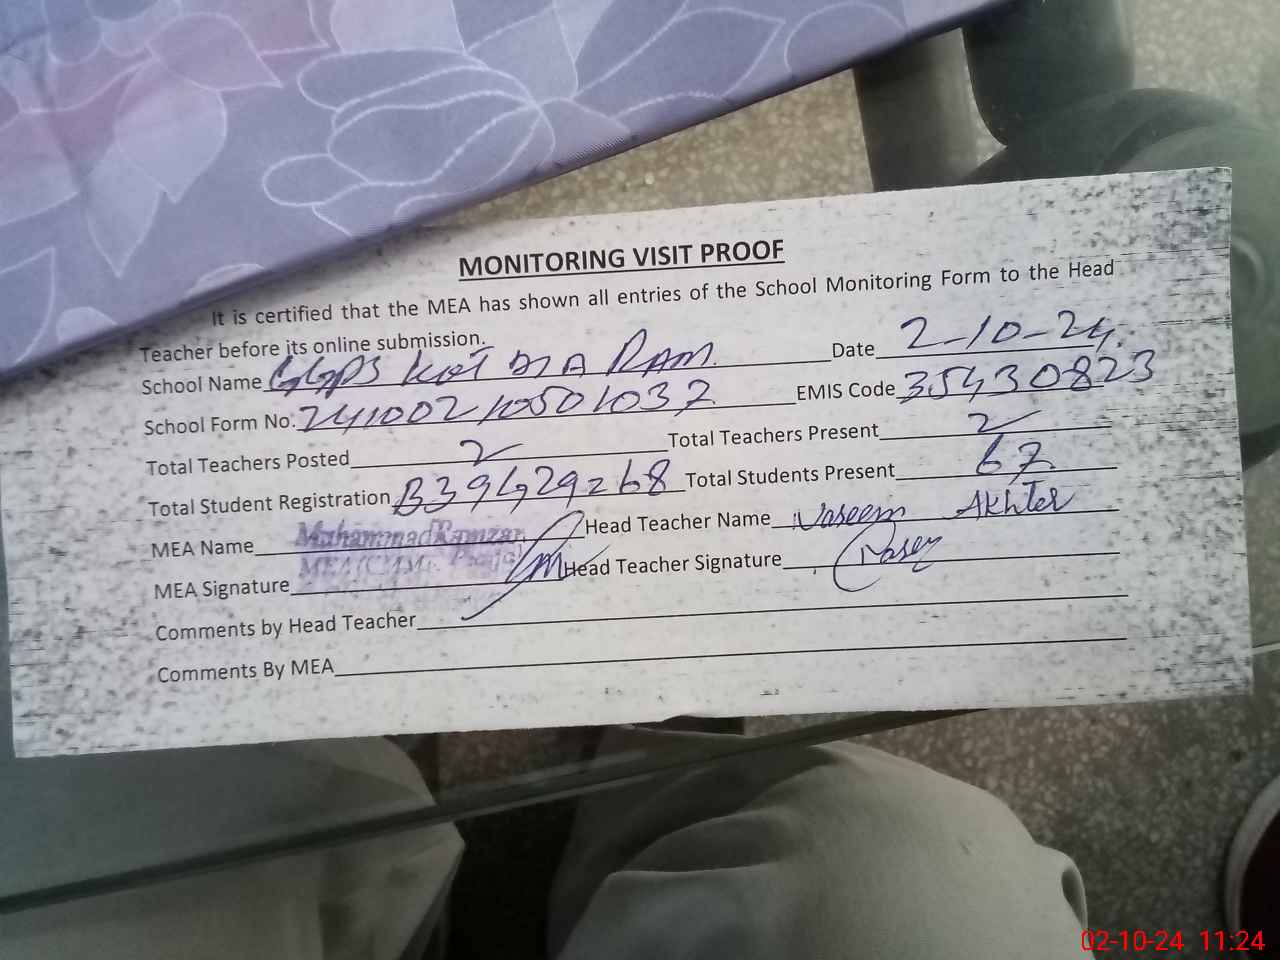 MONITORING VISIT PROOF
It is certified that the MEA has shown all entries of the School Monitoring Form to the Head
Teacher before its online submission.
School Name GGPS Kot RAM Date 2-10-24
School Form No: 24100210501037 EMIS Code 35430823
Total Teachers Posted 2 Total Teachers Present 2
Total Student Registration B39G29=68 Total Students Present 67
MEA Name Muhammad Ramzan Head Teacher Name Naseem Akhter
MEA Signature Head Teacher Signature
Comments by Head Teacher
Comments By MEA
02-10-24 11:24